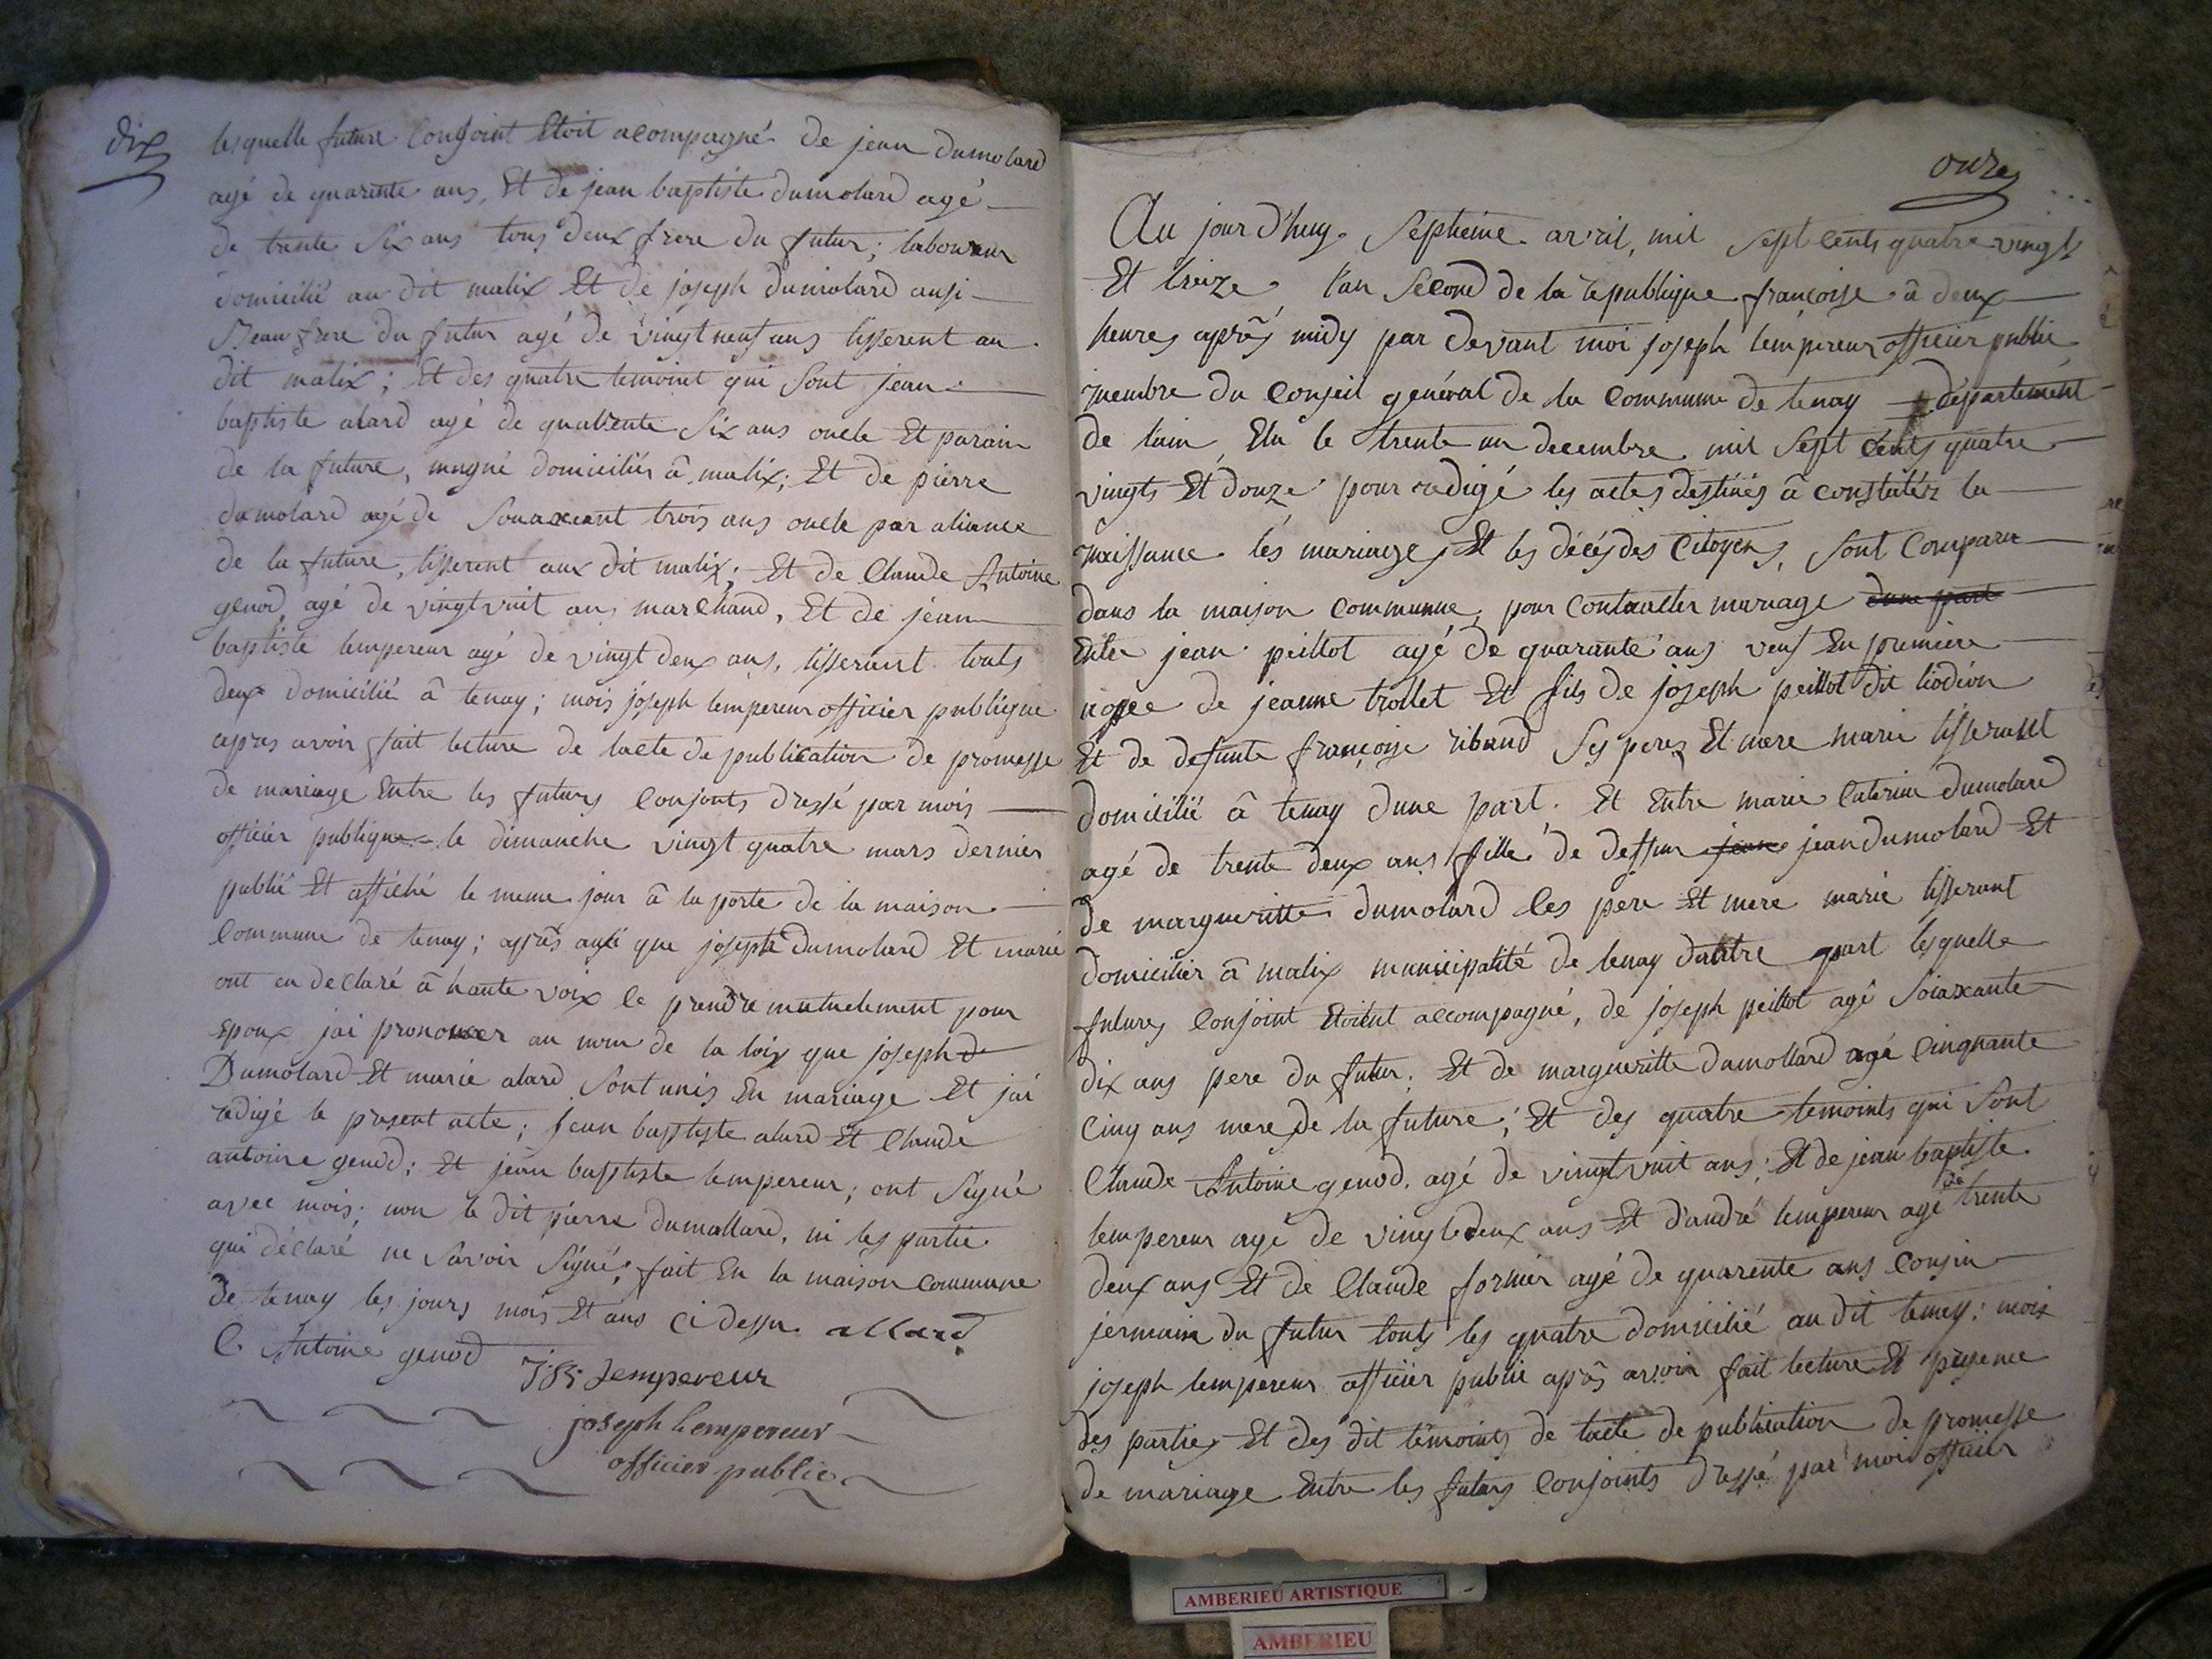 dix
lesquelle future Conjoint Etoit acompagné de jean dumolard
agé de quarente ans, Et de jean baptiste dumolard agé
de trente Six ans tous deux frere du futur; laboureur
domicilié au dit malix Et de joseph dumolard ausi
Beaufrere du futur agé de vingt neuf ans tisserent au
dit malix; Et des quatre temoint qui Sont jean
baptiste alard agé de quatrente Six ans oncle Et parain
de la future, domiciliés â malix; Et de pierre
dumolard agé de Souaxeant trois ans oncle par aliance
de la future, tisserent aux dit malix; Et de Claude Antoine
genod, agé de vingt vuit ans marchand, Et de jean
baptiste lempereur agé de vingt deux ans, tisserant touts
deux domicilié â tenay; mois joseph lempereur officier publique
apres avoir fait lecture de lacte de publication de promesse
de mariage Entre les futurs Conjonts dressé par mois
officier publique le dimanche vingt quatre mars dernier
publié Et affiché le meme jour â la porte de la maison
Commune de tenay; aprês ausi que joseph dumolard Et marie
ont eu declaré â haute voix Ce prendre mutuelement pour
Epoux jai prononcer au nom de la loix que joseph d
Dumolard Et marie alard Sont unis En mariage Et jai
redigé le present acte; jean baptiste alard Et Claude
antoine genod; Et jean baptiste lempereur; ont Signé
avec mois; non le dit pierre dumallard, ni les partie
qui déclaré ne Savoir Signé; fait En la maison Commune
de tenay les jours mois Et ans Ci dessu allard
C. Antoine genod
J.B. Lempereur
joseph Lempereur
officier public
onze
Au jour d'huy Septieme avril, mil Sept Cents quatre vingt
Et treize, l'an Second de la republique françoise â deux
heures aprês midy par devant moi joseph lempereur officier public
membre du Conseil genéral de la Commune de tenay département
de lain, Elu le trente un decembre mil Sept Cents quatre
vingts Et douze pour redigé les actes destinés â constatér la
naissance les mariages Et les décés des Citoyens, Sont Comparu
dans la maison Communne, pour Contracter mariage dune part
Entre jean peillot agé de quarante ans veuf En premiere
nopce de jeanne trollet Et fils de joseph peillot dit liodion
Et de defunte françoise riband Ses peres Et mere marie tisserant
domicilié â tenay dune part. Et Entre marie Caterine dumolard
agé de trente deux ans fille de deffun jean jean dumolard Et
de margueritte dumolard Ces pere Et mere marié tisserant
domicilier â malix municipalité de tenay dautre part lesquelle
futures Conjoint Etoient accompagné, de joseph peillot agé Soiaxante
dix ans pere du futur; Et de margueritte dumollard agé Cinquante
Cinq ans mere de la future; Et des quatre temoints qui Sont
Claude Antoine genod. agé de vingt vuit ans; Et de jean baptiste
lempereur agé de vingt deux ans Et d'andré lempereur agé de trente
deux ans Et de Claude formier agé de quarente ans Cousin
jermain du futur touts les quatre domicilié au dit tenay: mois
joseph lempereur officier public aprês avoir fait lecture Et presence
des parties Et des dit témoints de lacte de publication de promesse
de mariage Entre les futurs Conjoints dressé par moi officier
AMBERIEU ARTISTIQUE
AMBERIEU